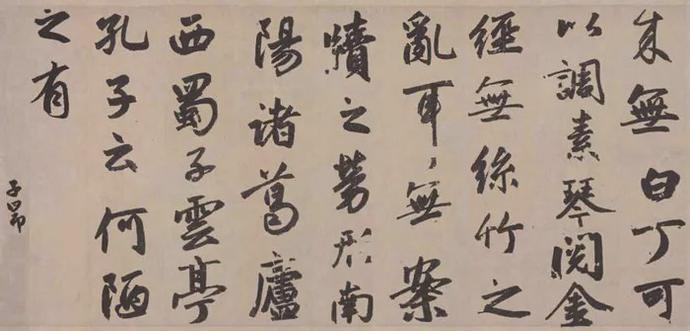 来無白丁可
以調素琴閱金
經無絲竹之
亂耳、無案
牘之勞形南
陽諸葛廬
西蜀子雲亭
孔子云何陋
之有
子昂